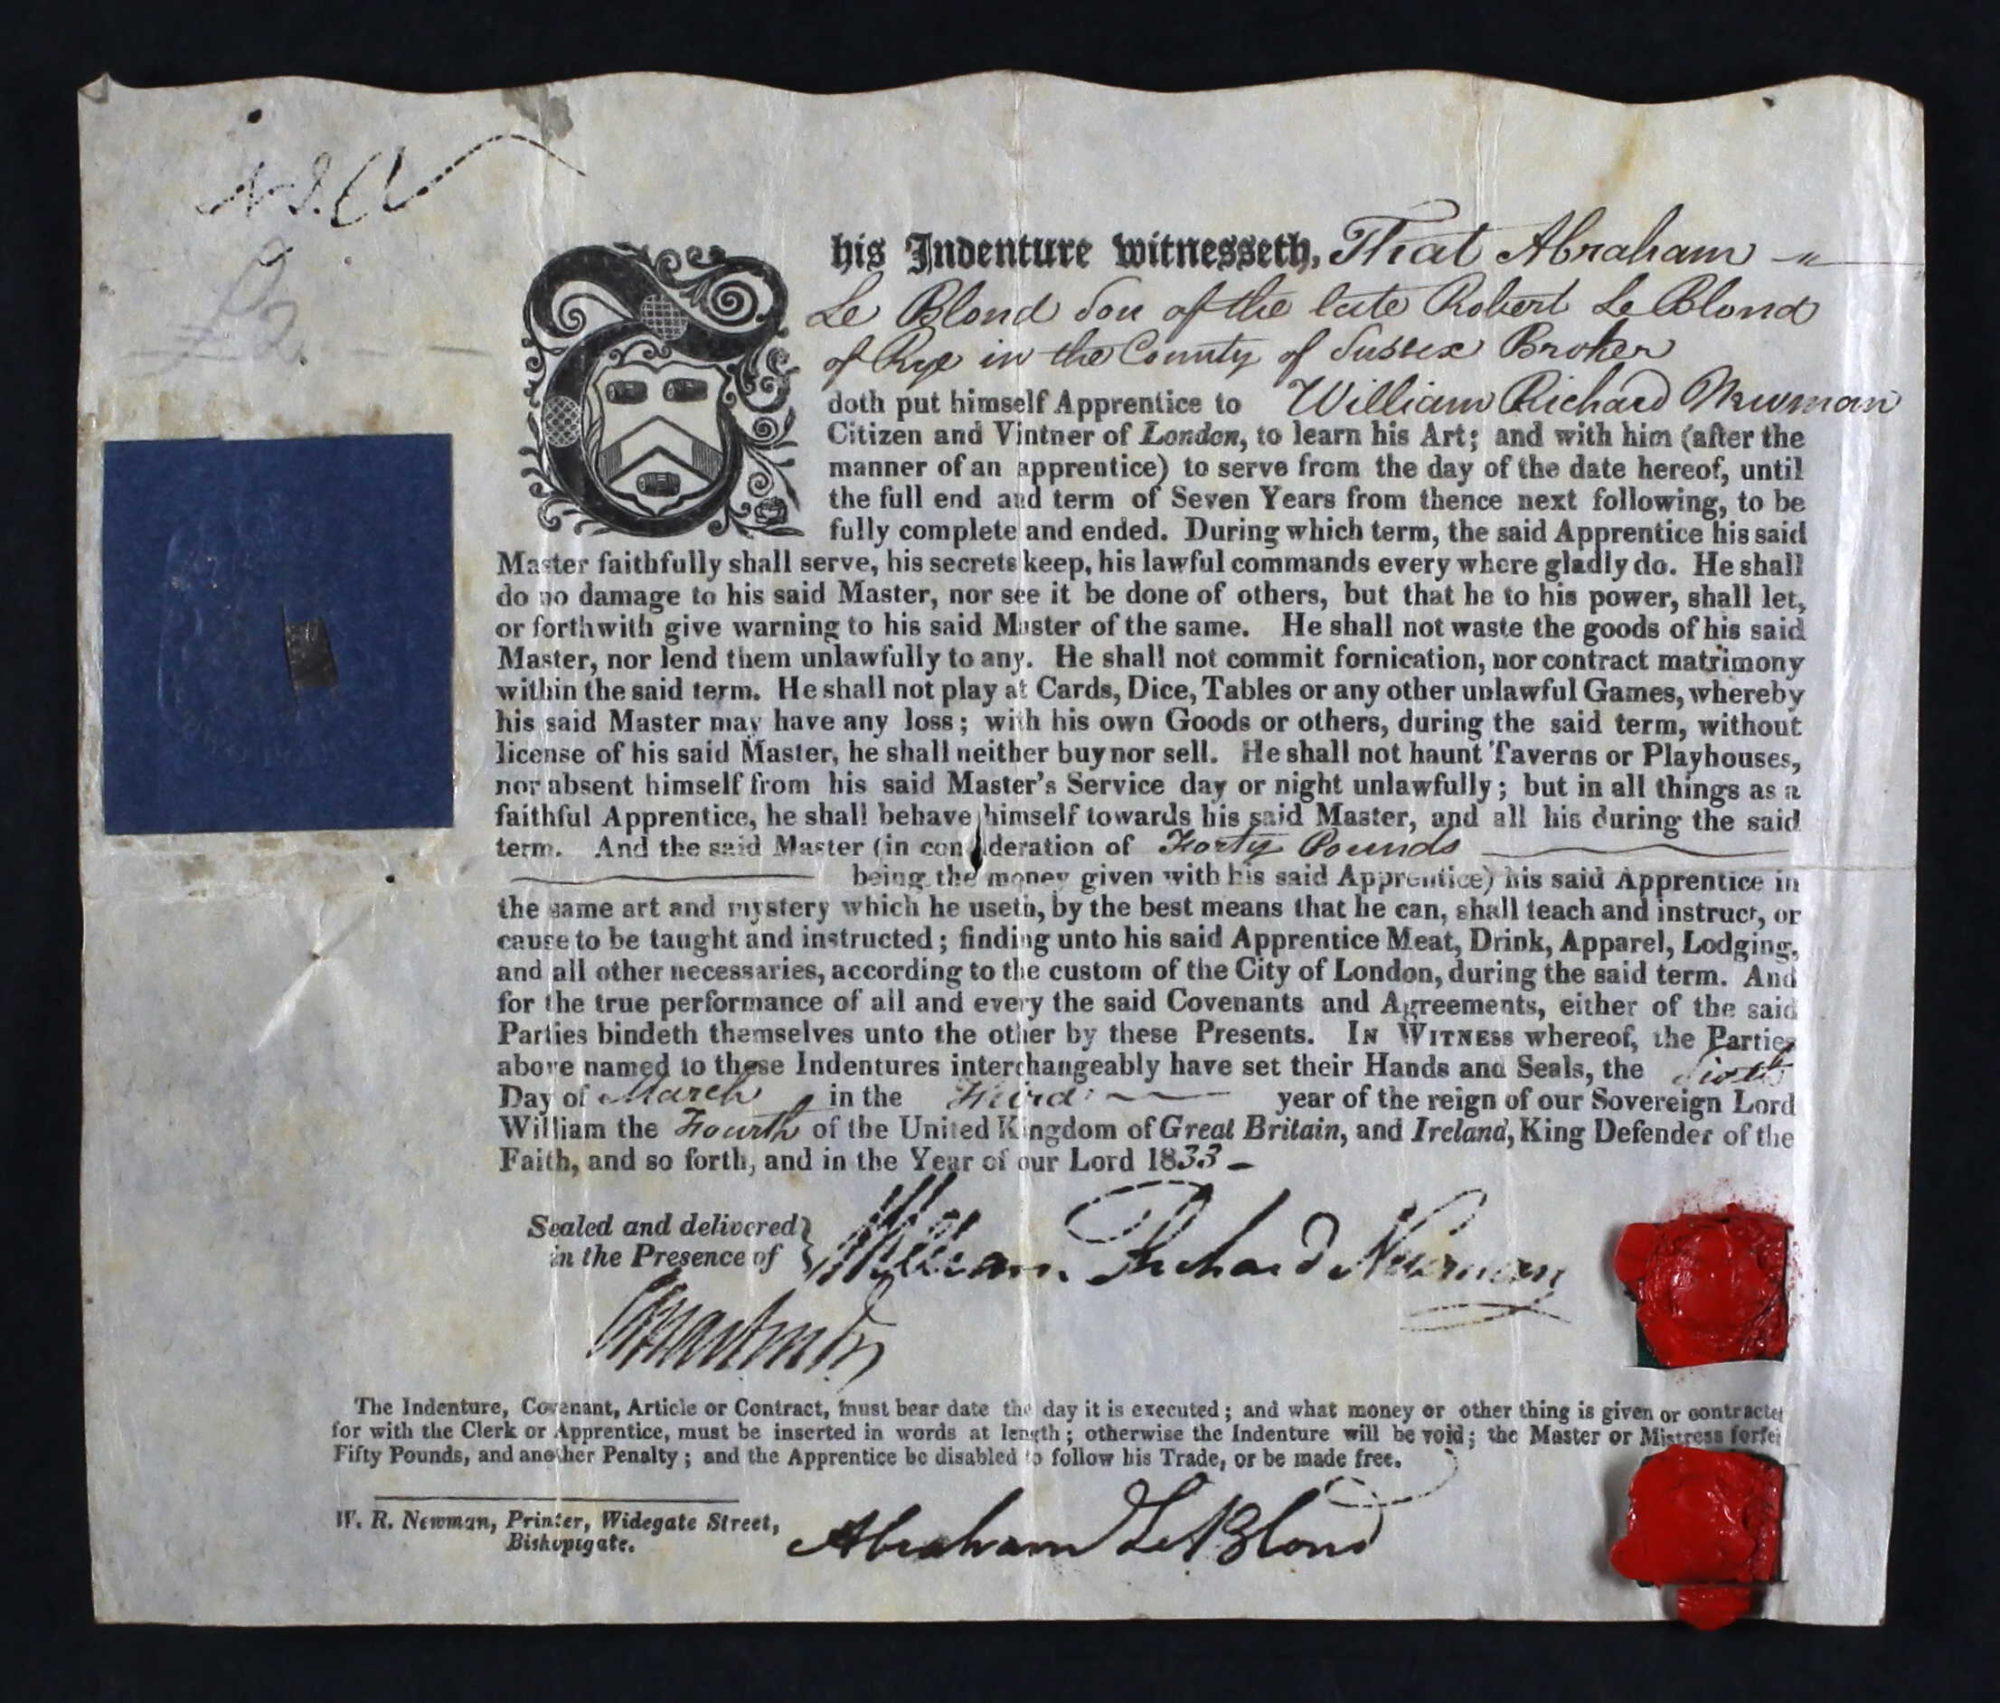 This Indenture witnesseth, That Abraham
Le Blond Son of the late Robert Le Blond
of Rye in the County of Sussex Broker
doth put himself Apprentice to William Richard Newman
Citizen and Vintner of London, to learn his Art; and with him (after the
manner of an apprentice) to serve from the day of the date hereof, until
the full end and term of Seven Years from thence next following, to be
fully complete and ended. During which term, the said Apprentice his said
Master faithfully shall serve, his secrets keep, his lawful commands every where gladly do. He shall
do no damage to his said Master, nor see it be done of others, but that he to his power, shall let,
or forthwith give warning to his said Master of the same. He shall not waste the goods of his said
Master, nor lend them unlawfully to any. He shall not commit fornication, nor contract matrimony
within the said term. He shall not play at Cards, Dice, Tables or any other unlawful Games, whereby
his said Master may have any loss; with his own Goods or others, during the said term, without
license of his said Master, he shall neither buy nor sell. He shall not haunt Taverns or Playhouses,
nor absent himself from his said Master's Service day or night unlawfully; but in all things as a
faithful Apprentice, he shall behave himself towards his said Master, and all his during the said
term. And the said Master (in consideration of Forty Pounds
being the money given with his said Apprentice) his said Apprentice in
the same art and mystery which he useth, by the best means that he can, shall teach and instruct, or
cause to be taught and instructed; finding unto his said Apprentice Meat, Drink, Apparel, Lodging,
and all other necessaries, according to the custom of the City of London, during the said term. And
for the true performance of all and every the said Covenants and Agreements, either of the said
Parties bindeth themselves unto the other by these Presents. IN WITNESS whereof, the Parties
above named to these Indentures interchangeably have set their Hands and Seals, the Sixth
Day of March in the Third year of the reign of our Sovereign Lord
William the Fourth of the United Kingdom of Great Britain, and Ireland, King Defender of the
Faith, and so forth, and in the Year of our Lord 1833
Sealed and delivered
in the Presence of
William Richard Newman
The Indenture, Covenant, Article or Contract, must bear date the day it is executed; and what money or other thing is given or contracted
for with the Clerk or Apprentice, must be inserted in words at length; otherwise the Indenture will be void; the Master or Mistress forfeit
Fifty Pounds, and another Penalty; and the Apprentice be disabled to follow his Trade, or be made free.
W. R. Newman, Printer, Widegate Street,
Bishopsgate.
Abraham Le Blond